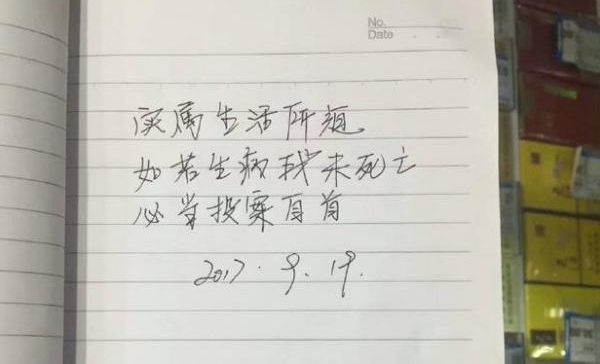 No.
Date
实属生活所迫
如若生病找未死亡
必当投案自首
2017.9.19.